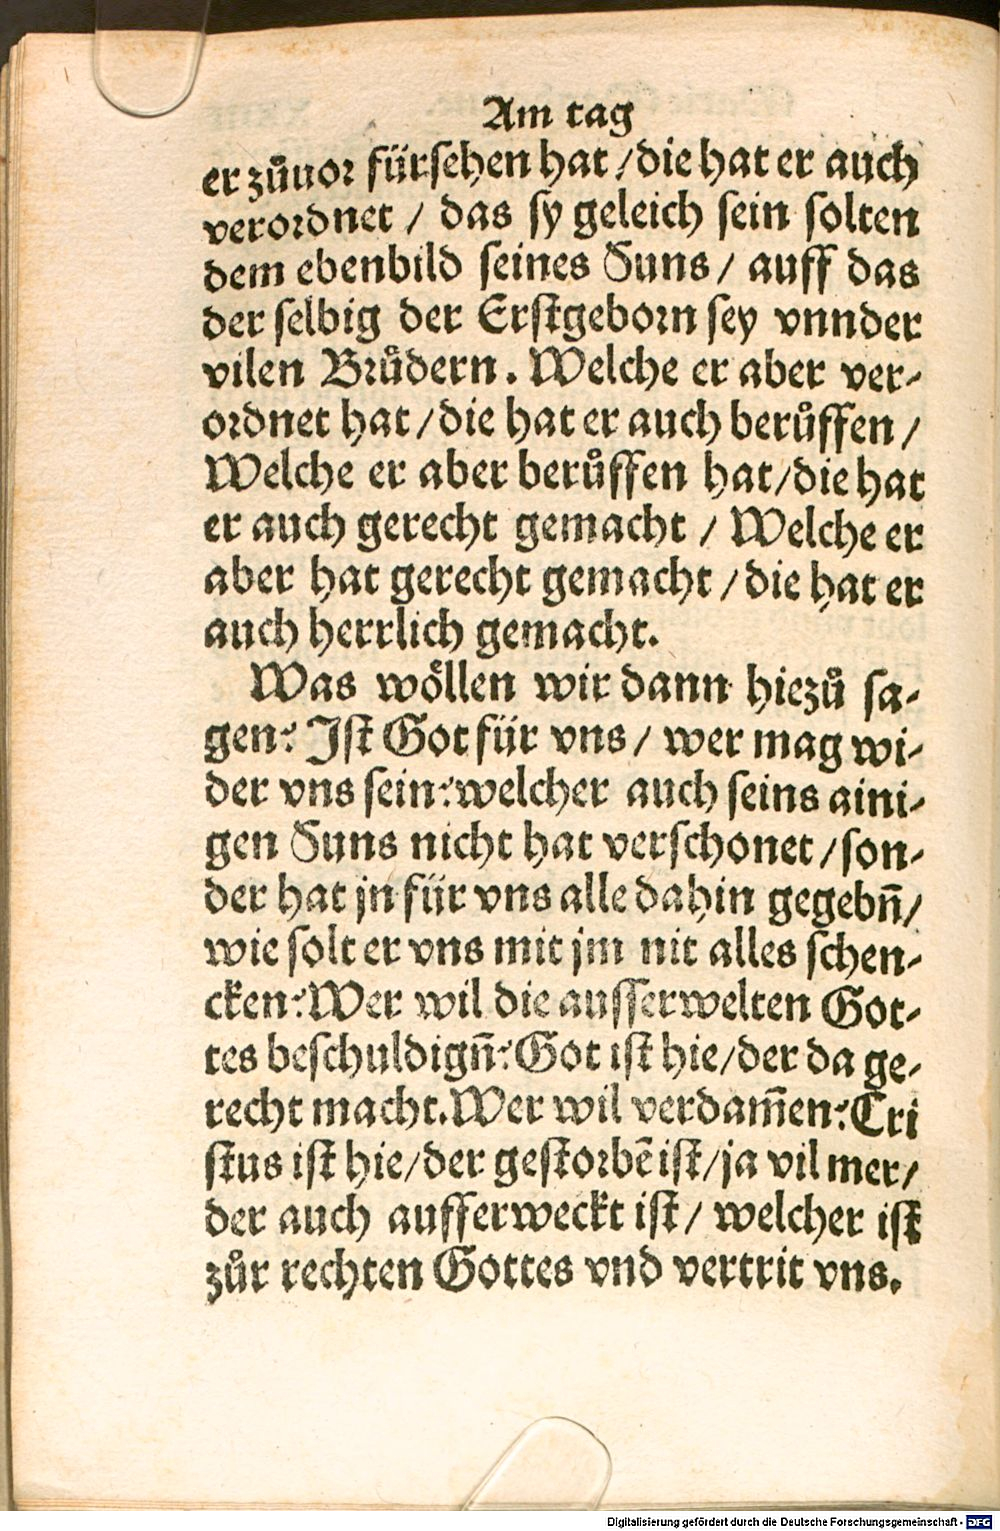 Am tag
er zůuor fürsehen hat / die hat er auch
verordnet / das sy geleich sein solten
dem ebenbild seines Suns / auff das
der selbig der Erstgeborn sey vnnder
vilen Brůdern. Welche er aber ver-
ordnet hat / die hat er auch berůffen /
Welche er aber berůffen hat / die hat
er auch gerecht gemacht / Welche er
aber hat gerecht gemacht / die hat er
auch herrlich gemacht.
Was wöllen wir dann hiezů sa-
gen? Ist Got für vns / wer mag wi-
der vns sein? welcher auch seins aini-
gen Suns nicht hat verschonet / son-
der hat jn für vns alle dahin gegebn̄ /
wie solt er vns mit jm nit alles schen-
cken? Wer wil die ausserwelten Got-
tes beschuldign̄? Got ist hie / der da ge-
recht macht. Wer wil verdam̄en? Cri
stus ist hie / der gestorbē ist / ja vil mer /
der auch aufferweckt ist / welcher ist
zůr rechten Gottes vnd vertrit vns.
Digitalisierung gefördert durch die Deutsche Forschungsgemeinschaft - DFG